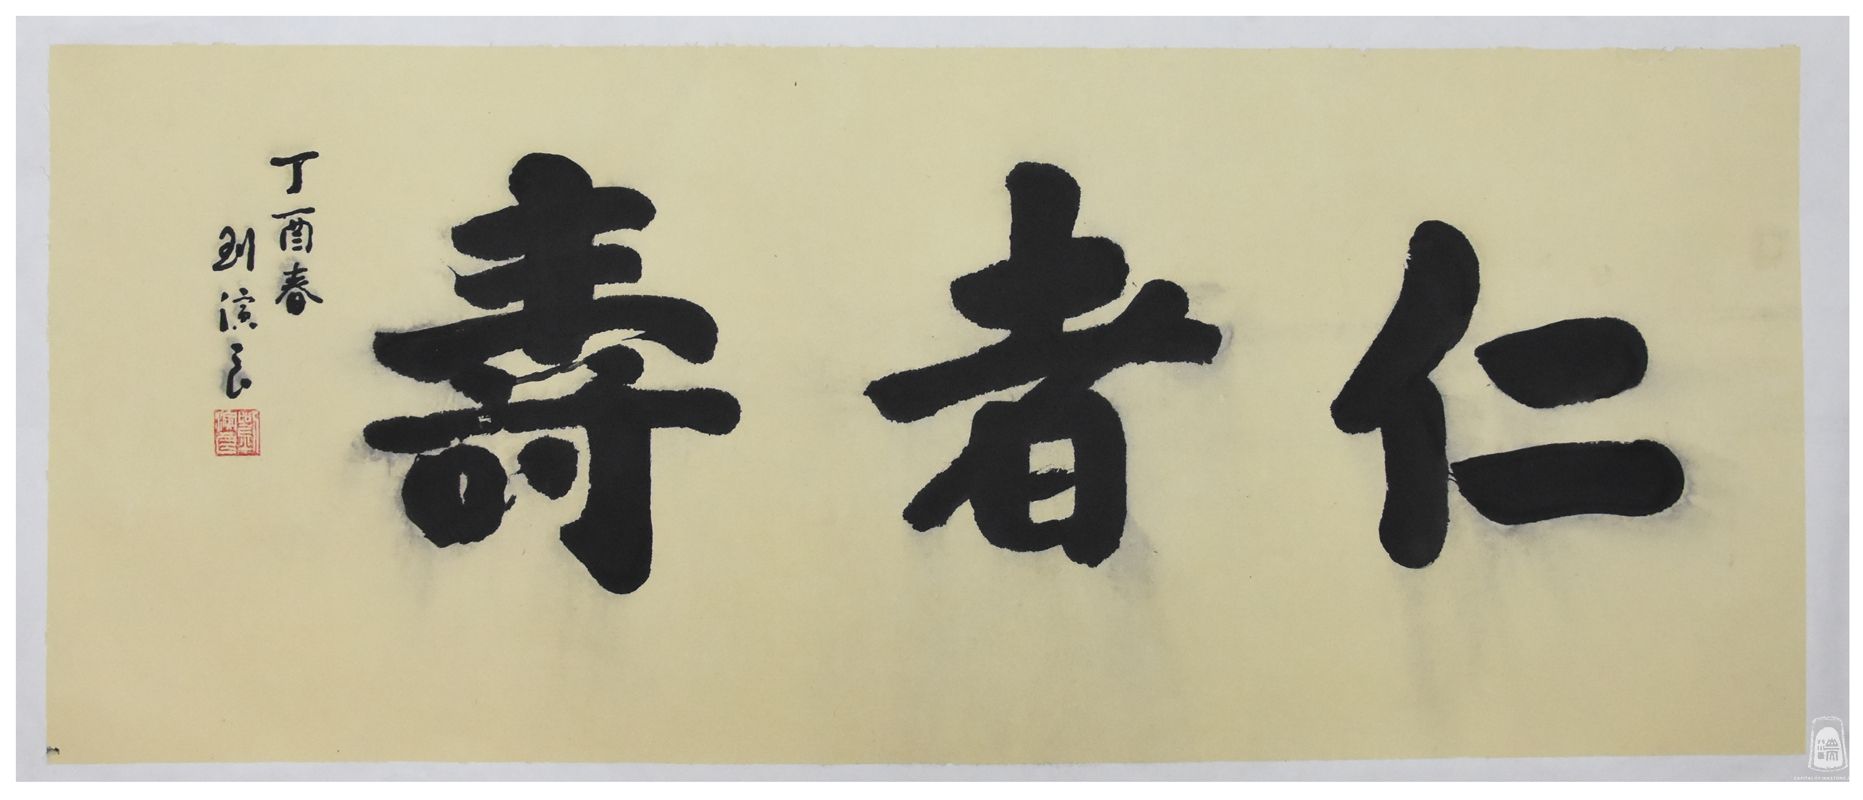 仁者壽
丁酉春
劉演良
劉演良
CAPITAL OF INKSTONE